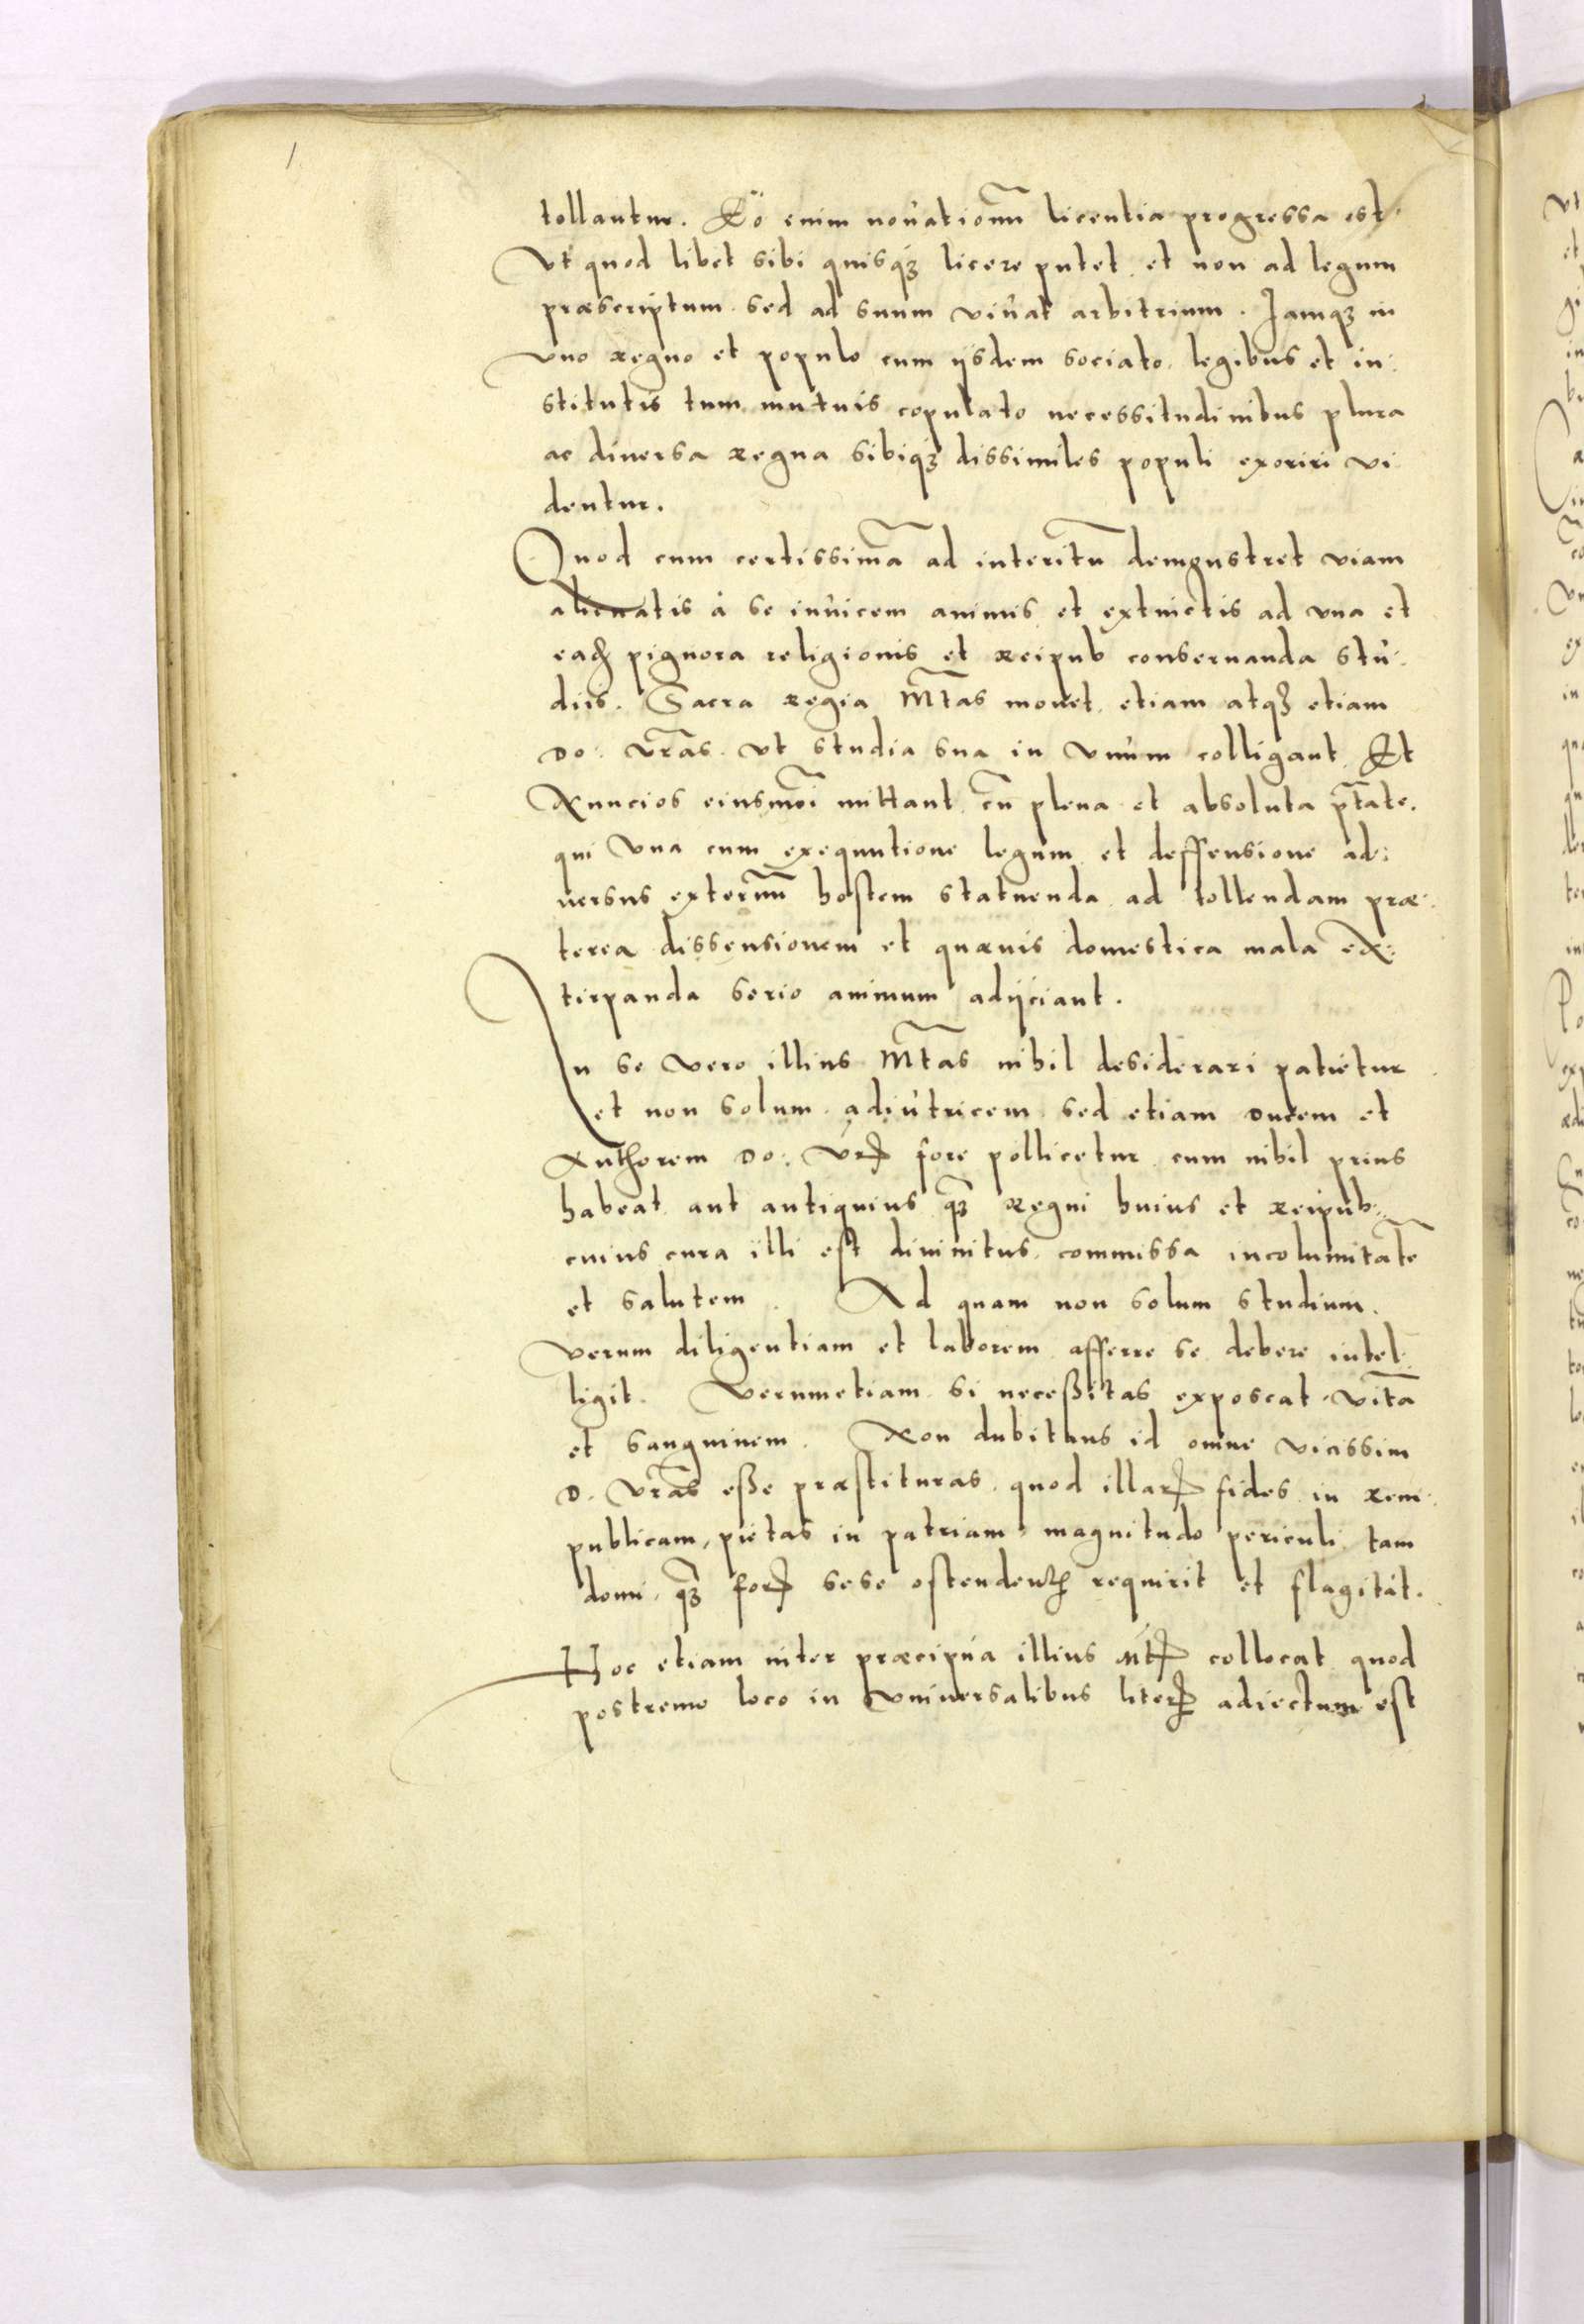 tollantur. Eò enim novationũ licentia progressa est.
Vt quod libet sibi quisqȝ licere putet et non ad legum
præscriptum sed ad suum viuat arbitrium. Iamqȝ in
vno regno et populo cum ijsdem sociato legibus et in:
stitutis tum mutuis copulato necessitudinibus plura
ac diuersa regna sibiqȝ dissimiles populi exoriri vi
dentur.
Quod cum certissimã ad interitũ demonstret viam
alienatis à se inuicem animis et extinctis ad vna et
eadꝫ pignora religionis et reipub conseruanda stu:
diis. Sacra regia Mt̃as monet etiam atqȝ etiam
Do: vr̃as vt studia sua in vnum colligant. Et
Nuncios eiusmõi mittant cũ plena et absoluta pt̃ate.
qui vna cum exequutione legum et deffensione ad:
uersus externũ hostem statuenda ad tollendam præ:
terea dissensionem et quæuis domestica mala ex:
tirpanda serio animum adijciant.
In se vero illius Mt̃as nihil desiderari patietur
et non solum adiutricem sed etiam ducem et
Authorem Do: vrꝭ fore pollicetur cum nihil prius
habeat aut antiquius qȝ̃ regni huius et reipub:
cuius cura illi est diuinitus commissa incolumitatẽ
et salutem. Ad quam non solum studium.
verum diligentiam et laborem afferre se debere intel:
ligit. Verumetiam si neceßitas exposcat vitã
et sanguinem. Non dubitans id omne vicissim
D. vr̃as eße præstituras quod illarꝭ fides in rem:
publicam, pietas in patriam magnitudo periculi tam
domi qȝ̃ forꝭ sese ostendentꝭ requirit et flagitat.
Hoc etiam inter præcipua illius Mtꝭ collocat quod
postremo loco in vniuersalibus literꝭ adiectum est